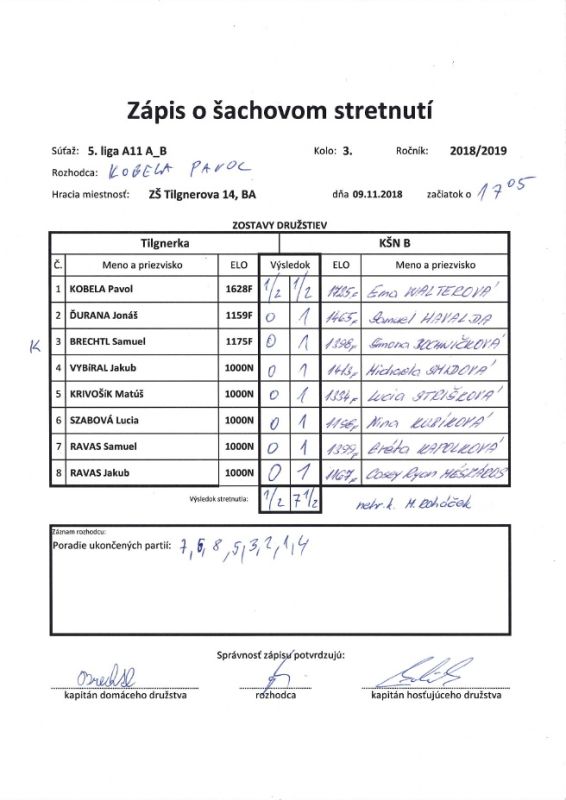 Zápis o šachovom stretnutí
Súťaž: 5. liga A11 A_B Kolo: 3. Ročník: 2018/2019
Rozhodca: KOBELA PAVOL
Hracia miestnosť: ZŠ Tilgnerova 14, BA dňa 09.11.2018 začiatok o 17 05
ZOSTAVY DRUŽSTIEV
Tilgnerka KŠN B
Č. Meno a priezvisko ELO Výsledok ELO Meno a priezvisko
1 KOBELA Pavol 1628F 1/2 1/2 1725F Ema WALTEROVÁ
2 ĎURANA Jonáš 1159F 0 1 1465F Samuel HAVALDA
K 3 BRECHTL Samuel 1175F 0 1 1398F Simona
4 VYBíRAL Jakub 1000N 0 1 Michaela
5 KRIVOŠíK Matúš 1000N 0 1 1334F Lucia STRIŠKOVÁ
6 SZABOVÁ Lucia 1000N 0 1 1156F Nina KUBÍKOVÁ
7 RAVAS Samuel 1000N 0 1 1399F Gréta KAPOLKOVÁ
8 RAVAS Jakub 1000N 0 1 1167F Casey Ryan MÉSZÁROS
Výsledok stretnutia: 1/2 7 1/2 nehr. k. M. Roháček
Záznam rozhodcu:
Poradie ukončených partií: 7, 6, 8, 5, 3, 2, 1, 4
Správnosť zápisu potvrdzujú:
kapitán domáceho družstva rozhodca kapitán hosťujúceho družstva